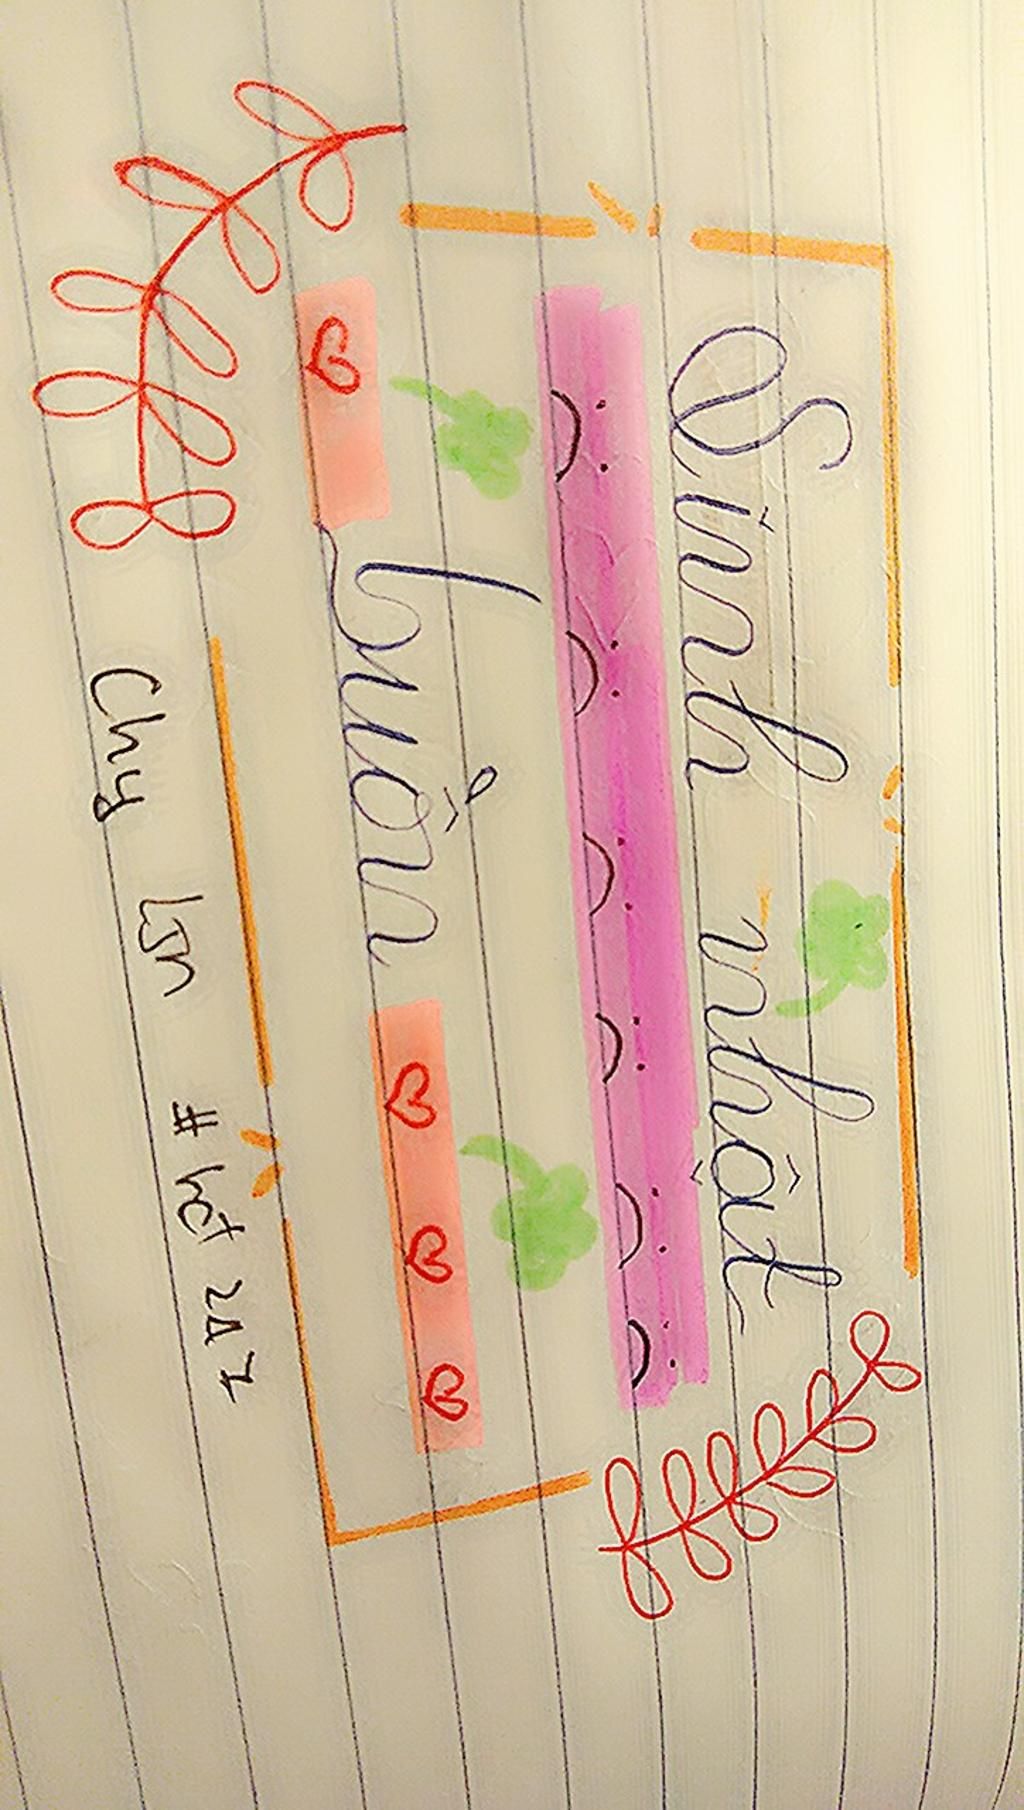 Sinh nhật
buồn
Chy ksn # hct 247